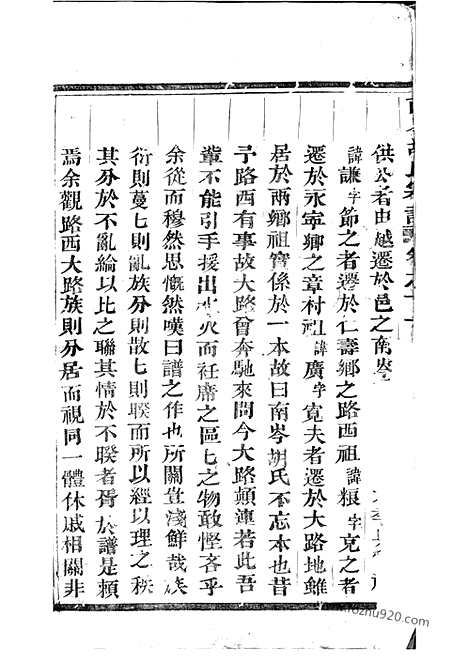 南岑胡氏宗譜 卷之十一
供公者由越遷於邑之南岑
諱謙字節之者遷於仁壽鄉之路西祖諱粮字克之者
遷於永寧鄉之章村祖諱廣字寬夫者遷於大路地雖
居於兩鄉祖實係於一本故曰南岑胡氏不忘本也昔
予路西有事故大路會奔馳來問今大路顛連若此吾
輩不能引手援出水火而衽席之區七之物敢慳吝乎
余從而穆然思慨然嘆曰譜之作也所關豈淺鮮哉族
衍則蔓七則亂族分則散七則睽而所以經以理之秩
其分於不亂綸以比之聯其情於不睽者胥於譜是頼
焉余觀路西大路族則分居而視同一體休戚相關非
www.jiazhu920.com